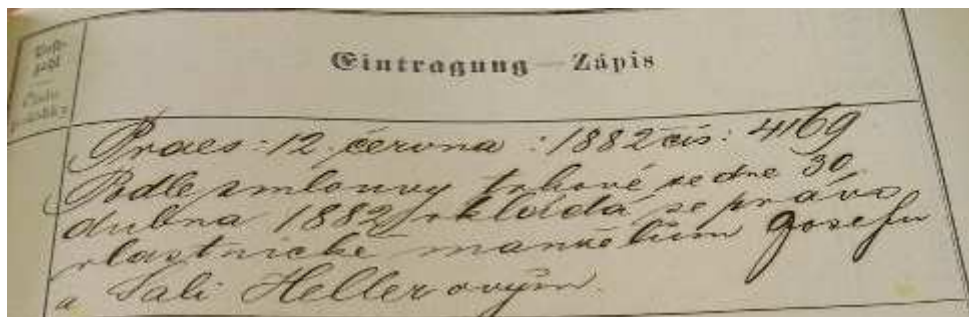 Post-
zahl
Číslo
položky
Eintragung — Zápis
Praes: 12. června : 1882 čís: 4169
Podle smlouvy trhové ze dne 30
dubna 1882 vkládá se právo
vlastnické manželům Josefu
a Sali Hellerovým.